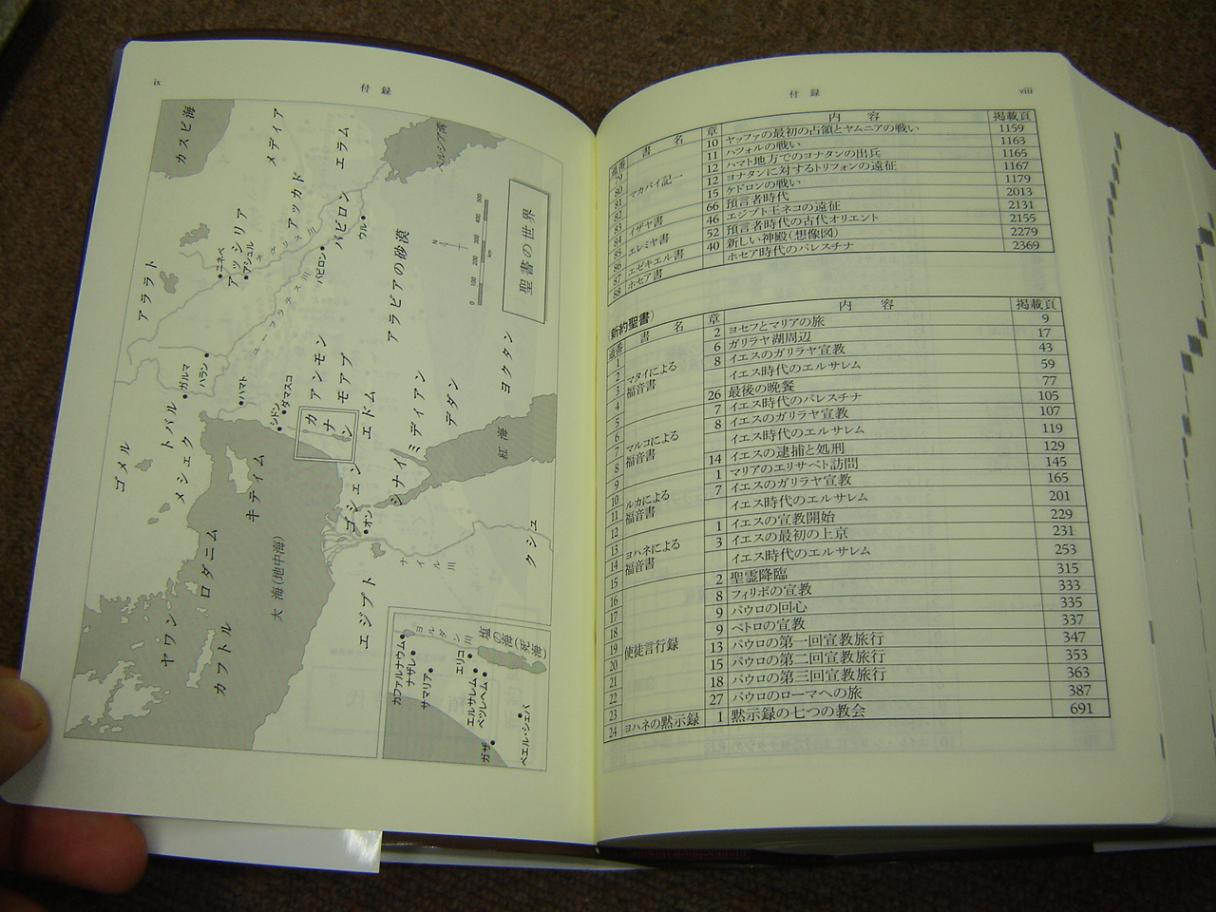 付録
viii
通番 書名 章 内容 掲載頁
79 マカバイ記一 10 ヤッファの最初の占領とヤムニアの戦い 1159
80 11 ハツォルの戦い 1163
81 12 ハマト地方でのヨナタンの出兵 1165
82 12 ヨナタンに対するトリフォンの遠征 1167
83 15 ケドロンの戦い 1179
84 イザヤ書 66 預言者時代 2013
85 エレミヤ書 46 エジプト王ネコの遠征 2131
86 52 預言者時代の古代オリエント 2155
87 エゼキエル書 40 新しい神殿(想像図) 2279
88 ホセア書 ホセア時代のパレスチナ 2369
新約聖書)
通番 書名 章 内容 掲載頁
1 マタイによる福音書 2 ヨセフとマリアの旅 9
2 6 ガリラヤ湖周辺 17
3 8 イエスのガリラヤ宣教 43
4 イエス時代のエルサレム 59
5 26 最後の晩餐 77
6 マルコによる福音書 7 イエス時代のパレスチナ 105
7 8 イエスのガリラヤ宣教 107
8 イエス時代のエルサレム 119
9 14 イエスの逮捕と処刑 129
10 ルカによる福音書 1 マリアのエリサベト訪問 145
11 7 イエスのガリラヤ宣教 165
12 イエス時代のエルサレム 201
13 ヨハネによる福音書 1 イエスの宣教開始 229
14 3 イエスの最初の上京 231
15 イエス時代のエルサレム 253
16 使徒言行録 2 聖霊降臨 315
17 8 フィリポの宣教 333
18 9 パウロの回心 335
19 9 ペトロの宣教 337
20 13 パウロの第一回宣教旅行 347
21 15 パウロの第二回宣教旅行 353
22 18 パウロの第三回宣教旅行 363
23 27 パウロのローマへの旅 387
24 ヨハネの黙示録 1 黙示録の七つの教会 691
ix
付録
聖書の世界
カスピ海
メディア
エラム
ペルシア湾
アララト
アッシリア
アッカド
バビロン
ニネベ
アシュル
チグリス川
ユーフラテス川
バビロン
ウル
アラビアの砂漠
N
0 100 200 300 400 500
km
ゴメル
トバル
メシェク
ガルマ
ハラン
ハマト
シドン
ダマスコ
カナン
アンモン
モアブ
エドム
ミディアン
デダン
ヨクタン
キティム
ロダニム
ヤワン
カフトル
大海(地中海)
ゴシェン
オン
シナイ
紅海
エジプト
ナイル川
クシュ
カファルナウム
ナザレ
サマリア
ヨルダン川
エリコ
エルサレム
ベツレヘム
塩の海(死海)
ガザ
ベエル・シェバ